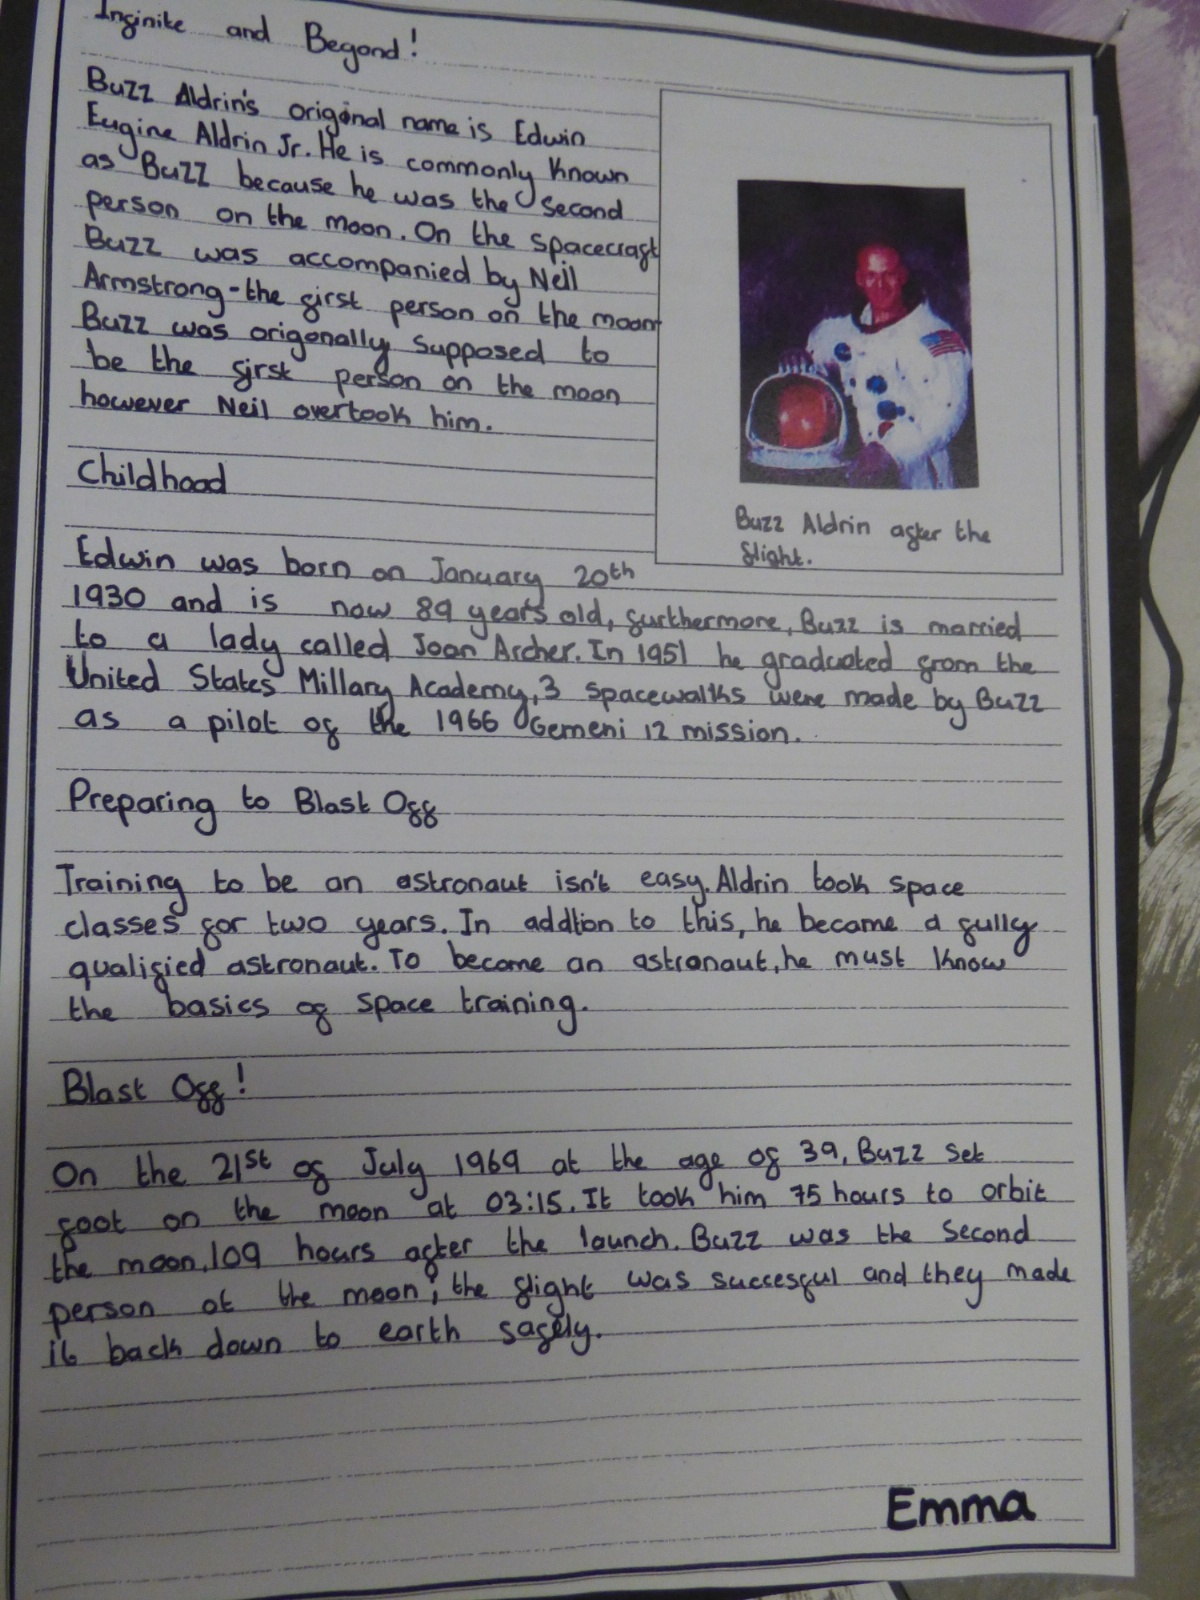 Infinite and Beyond!
Buzz Aldrin's original name is Edwin
Eugine Aldrin Jr. He is commonly known
as Buzz because he was the second
person on the moon. On the spacecraft
Buzz was accompanied by Neil
Armstrong - the first person on the moon
Buzz was origonally supposed to
be the first person on the moon
however Neil overtook him.
Buzz Aldrin after the
flight.
Childhood
Edwin was born on January 20th
1930 and is now 89 years old, furthermore, Buzz is married
to a lady called Joan Archer. In 1951 he graduated from the
United States Millary Academy, 3 spacewalks were made by Buzz
as a pilot of the 1966 Gemeni 12 mission.
Preparing to Blast Off
Training to be an astronaut isn't easy. Aldrin took space
classes for two years. In addtion to this, he became a fully
qualified astronaut. To become an astronaut, he must know
the basics of space training.
Blast Off!
On the 21st of July 1969 at the age of 39, Buzz set
foot on the moon at 03:15. It took him 75 hours to orbit
the moon, 109 hours after the launch. Buzz was the second
person at the moon; the flight was succesful and they made
it back down to earth safely.
Emma